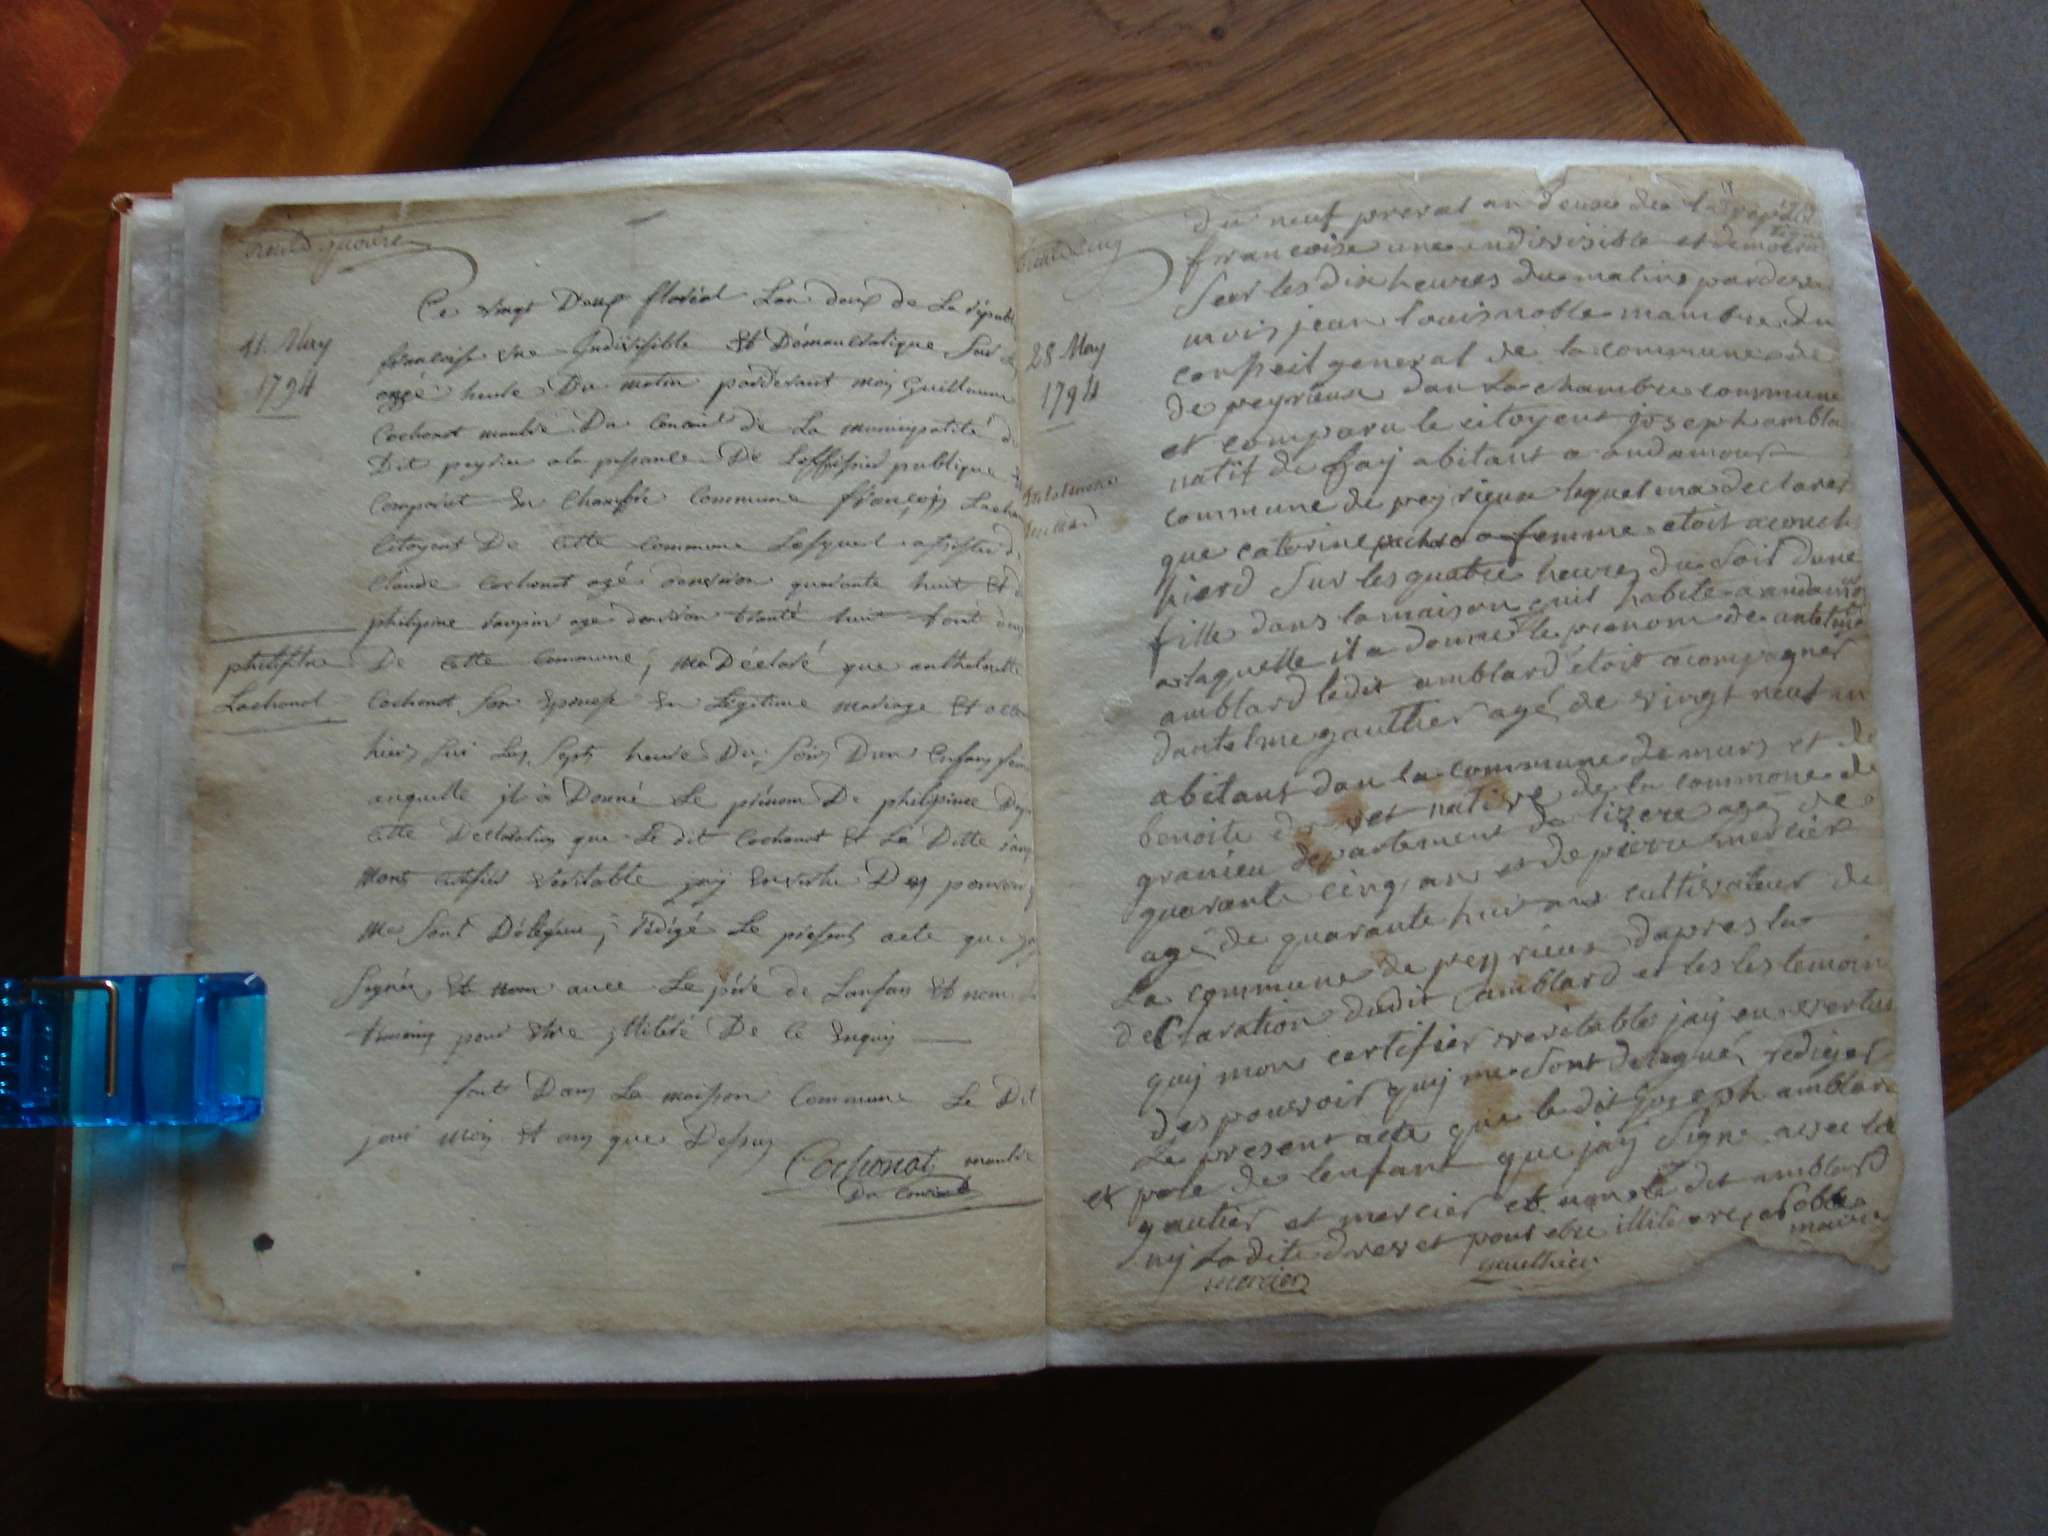 11. May
1794
Ce vingt Deux floréal Lan deux de La républ
francoise une Indivisible Et Démocratique Sur
onze heure Du matin pardevant moy Guillaume
Cochonat manbre Du Conseil de La municipalité d
Dit peyrieu a la pessance De Loffissier publique
Comparut En Chambre Commune françois Lachon
Citoyent De Cette Commune Lesquel assister d
Claude Cochonat agé denviron quarante huit Et d
philipine agé denviron trante huit tout deux
philipine
Lachonat
De Cette Commune, ma Déclaré que anthelmette
Cochonat Son Epouse En Légitime mariage Et
hier Sur Les Sept heure Du Soir Dun Enfant
auquelle jl à Donné Le prénom De philipinee
Cette Déclaration que Le dit Cochonat Et La Ditte
mont Certifier Veritable jay En vertu Des pouvoir
me Sont Délégué, rédigé Le présent acte que
Signer Et non avec Le père de Lanfan Et non
temoins pour Etre Illiteré De Ce Enquis
fait Dans La maison Commune Le Dit
jour mois Et an que Dessus
Cochonat manbre
Du Conseil
28 May
1794
du neuf prerial an deuse de la repub
francoise une indivisible et democra
Seur les dix heures du matin pardevan
mois jean louis noble manbre du
conseil general de la commune de
de peyrieux dan la chambre commune
et comparu le citoyent joseph ambla
natif de fay abitant a andamour
commune de peyrieux lequel ma declarer
que caterine femme etoit acouch
hierd Sur les quatre heures du Soir dune
fille dans la maison quil habite a andamo
a laquelle il a donné le prenom de antelme
amblard ledit amblard etoit acompagner
dantelme gauthier agé de vingt neuf an
abitant dan la commune de murs et de
benoite drevet native de la commone de
granieu departement de lizere agé de
quarante cinq an et de pierre mercier
agé de quarante huit ans cultivateur de
La commune de peyrieux dapres la
declaration dudit amblard et les les temoin
quij mon certifier veritable jaij en vertu
des pouvoir quij me sont delegué rediger
Le present acte que le dit joseph amblard
et pere de lenfant que jaij Signe avec le
gautier et mercier et non le dit amblard
nij Ladite drevet pour etre illitere noble
maire
mercier
gauthier